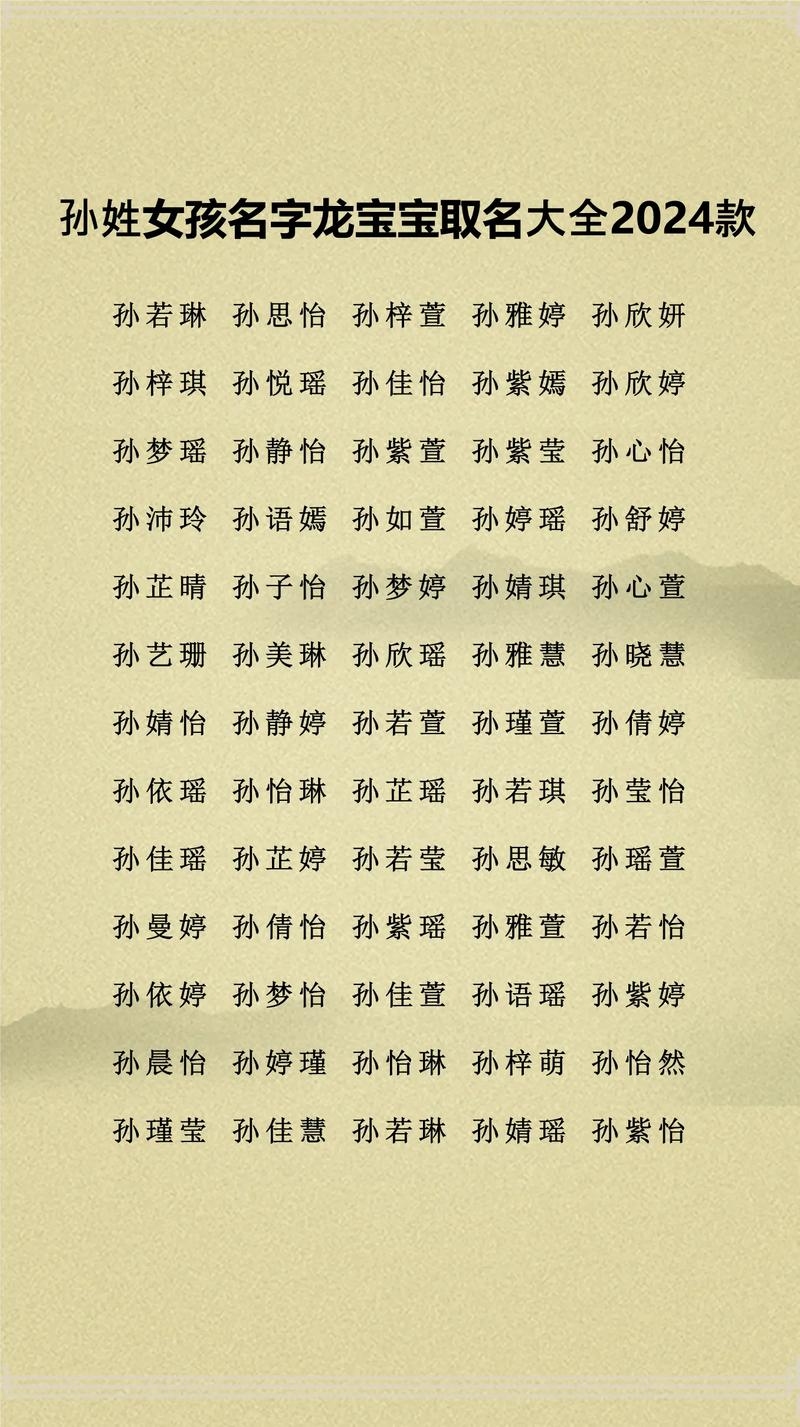 孙姓女孩名字龙宝宝取名大全2024款
孙若琳 孙思怡 孙梓萱 孙雅婷 孙欣妍
孙梓琪 孙悦瑶 孙佳怡 孙紫嫣 孙欣婷
孙梦瑶 孙静怡 孙紫萱 孙紫莹 孙心怡
孙沛玲 孙语嫣 孙如萱 孙婷瑶 孙舒婷
孙芷晴 孙子怡 孙梦婷 孙婧琪 孙心萱
孙艺珊 孙美琳 孙欣瑶 孙雅慧 孙晓慧
孙婧怡 孙静婷 孙若萱 孙瑾萱 孙倩婷
孙依瑶 孙怡琳 孙芷瑶 孙若琪 孙莹怡
孙佳瑶 孙芷婷 孙若莹 孙思敏 孙瑶萱
孙曼婷 孙倩怡 孙紫瑶 孙雅萱 孙若怡
孙依婷 孙梦怡 孙佳萱 孙语瑶 孙紫婷
孙晨怡 孙婷瑾 孙怡琳 孙梓萌 孙怡然
孙瑾莹 孙佳慧 孙若琳 孙婧瑶 孙紫怡